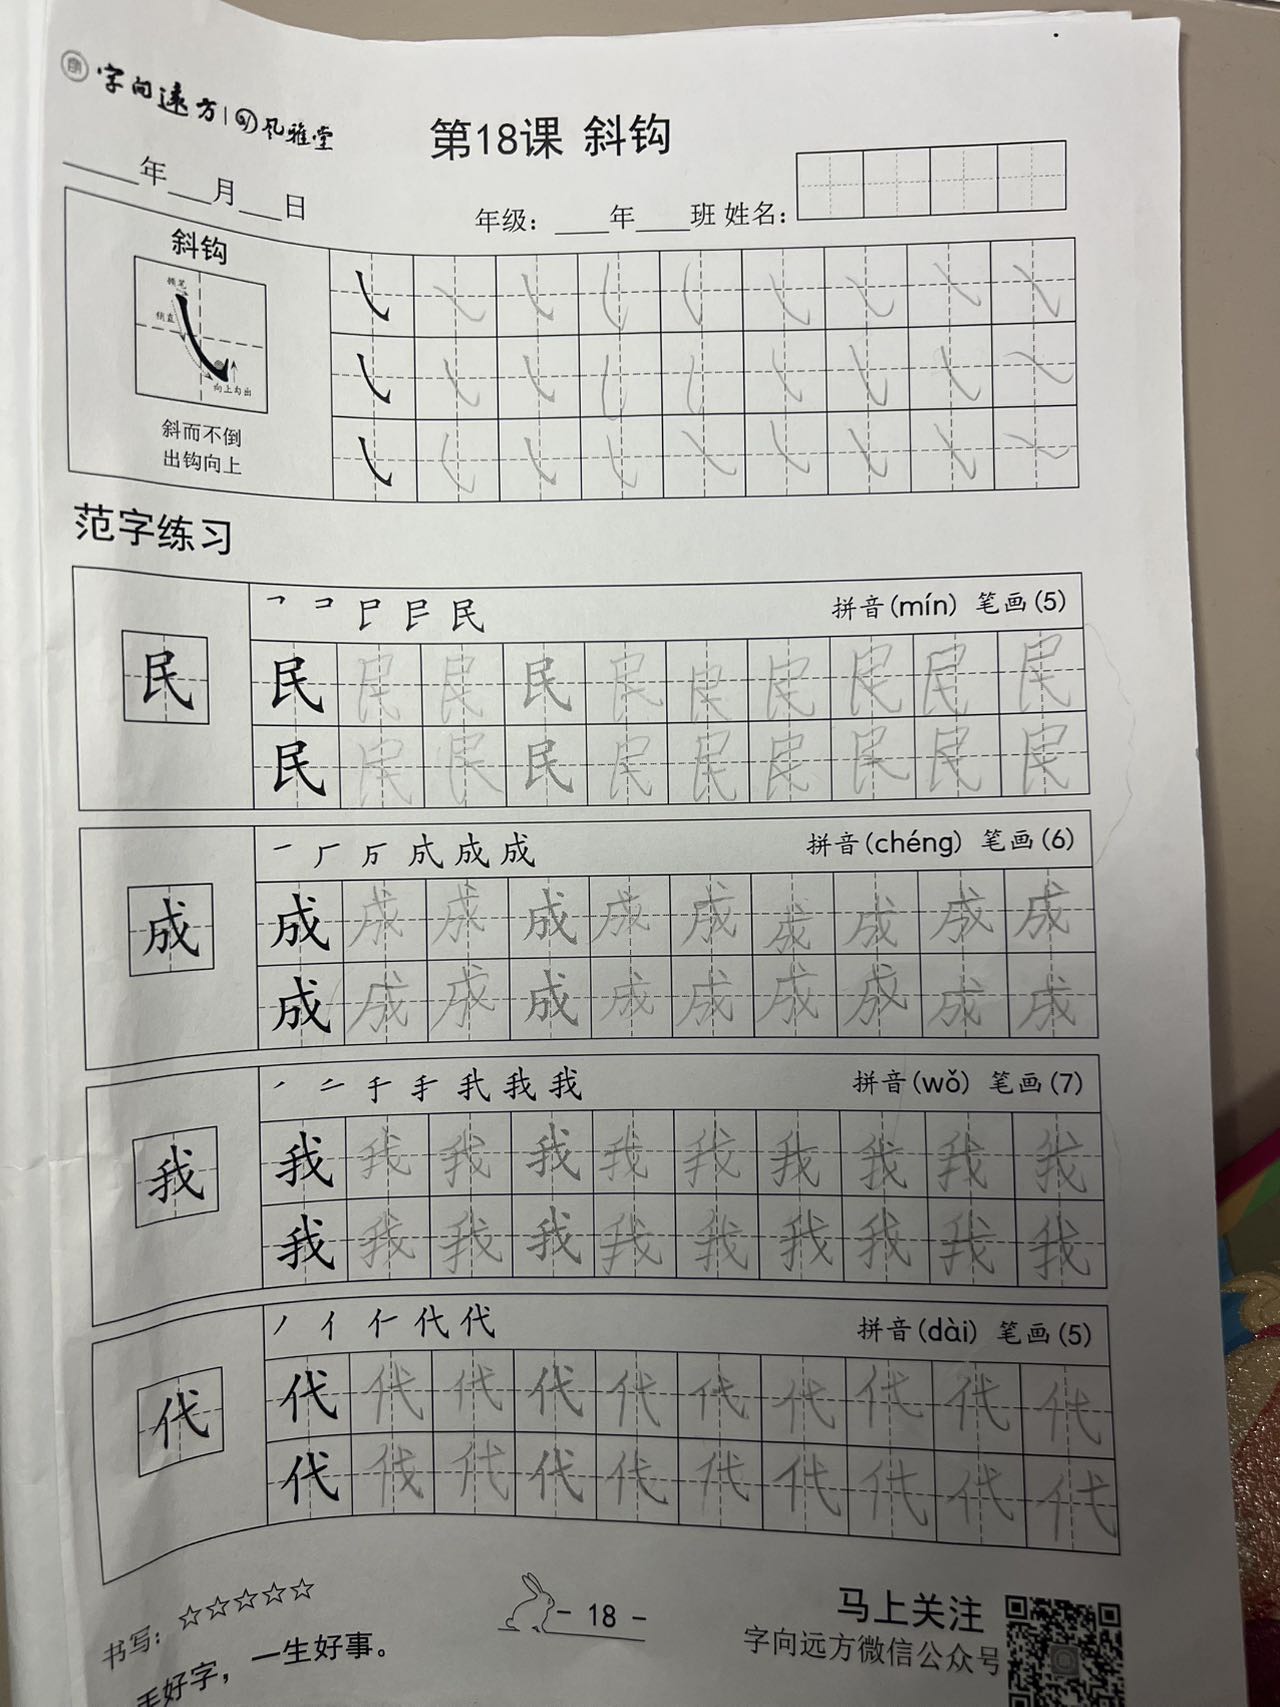 字向远方 风雅堂
第18课 斜钩
____年___月___日
年级：____年____班 姓名：
斜钩
顿笔
稍直
向上勾出
斜而不倒
出钩向上
范字练习
拼音(mín) 笔画(5)
民
民 民 民 民 民 民 民 民 民 民
民 民 民 民 民 民 民 民 民 民
成 成 成 拼音(chéng) 笔画(6)
成
成 成 成 成 成 成 成 成 成 成
成 成 成 成 成 成 成 成 成 成
我 我 拼音(wǒ) 笔画(7)
我
我 我 我 我 我 我 我 我 我 我
我 我 我 我 我 我 我 我 我 我
丿 亻 仁 代 代 拼音(dài) 笔画(5)
代
代 代 代 代 代 代 代 代 代 代
代 代 代 代 代 代 代 代 代 代
书写：☆☆☆☆☆
手好字，一生好事。
- 18 -
马上关注
字向远方微信公众号